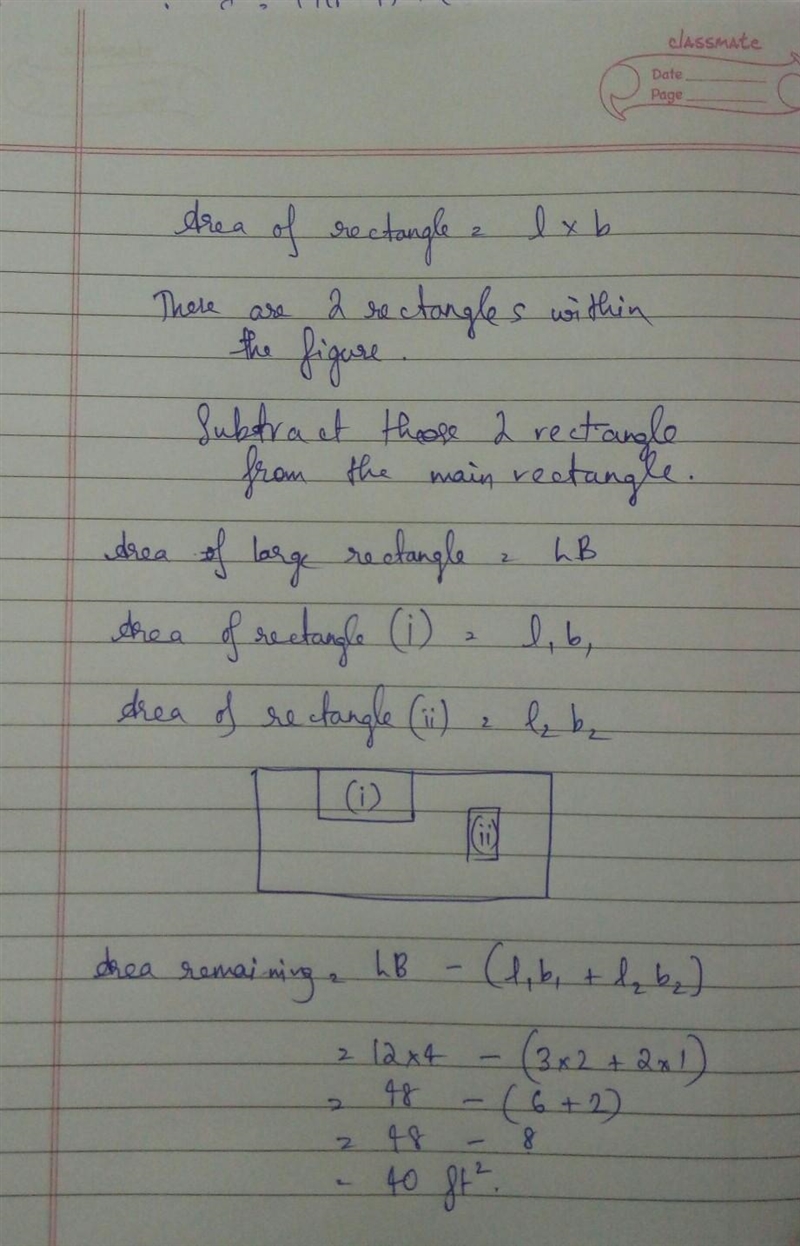 classmate
Date
Page
Area of rectangle = l × b
There are 2 rectangles within
the figure.
Substract those 2 rectangle
from the main rectangle.
Area of large rectangle = LB
Area of rectangle (i) = l₁b₁
Area of rectangle (ii) = l₂b₂
(i)
(ii)
Area remaining = LB - (l₁b₁ + l₂b₂)
= 12×4 - (3×2 + 2×1)
= 48 - (6 + 2)
= 48 - 8
= 40 ft².